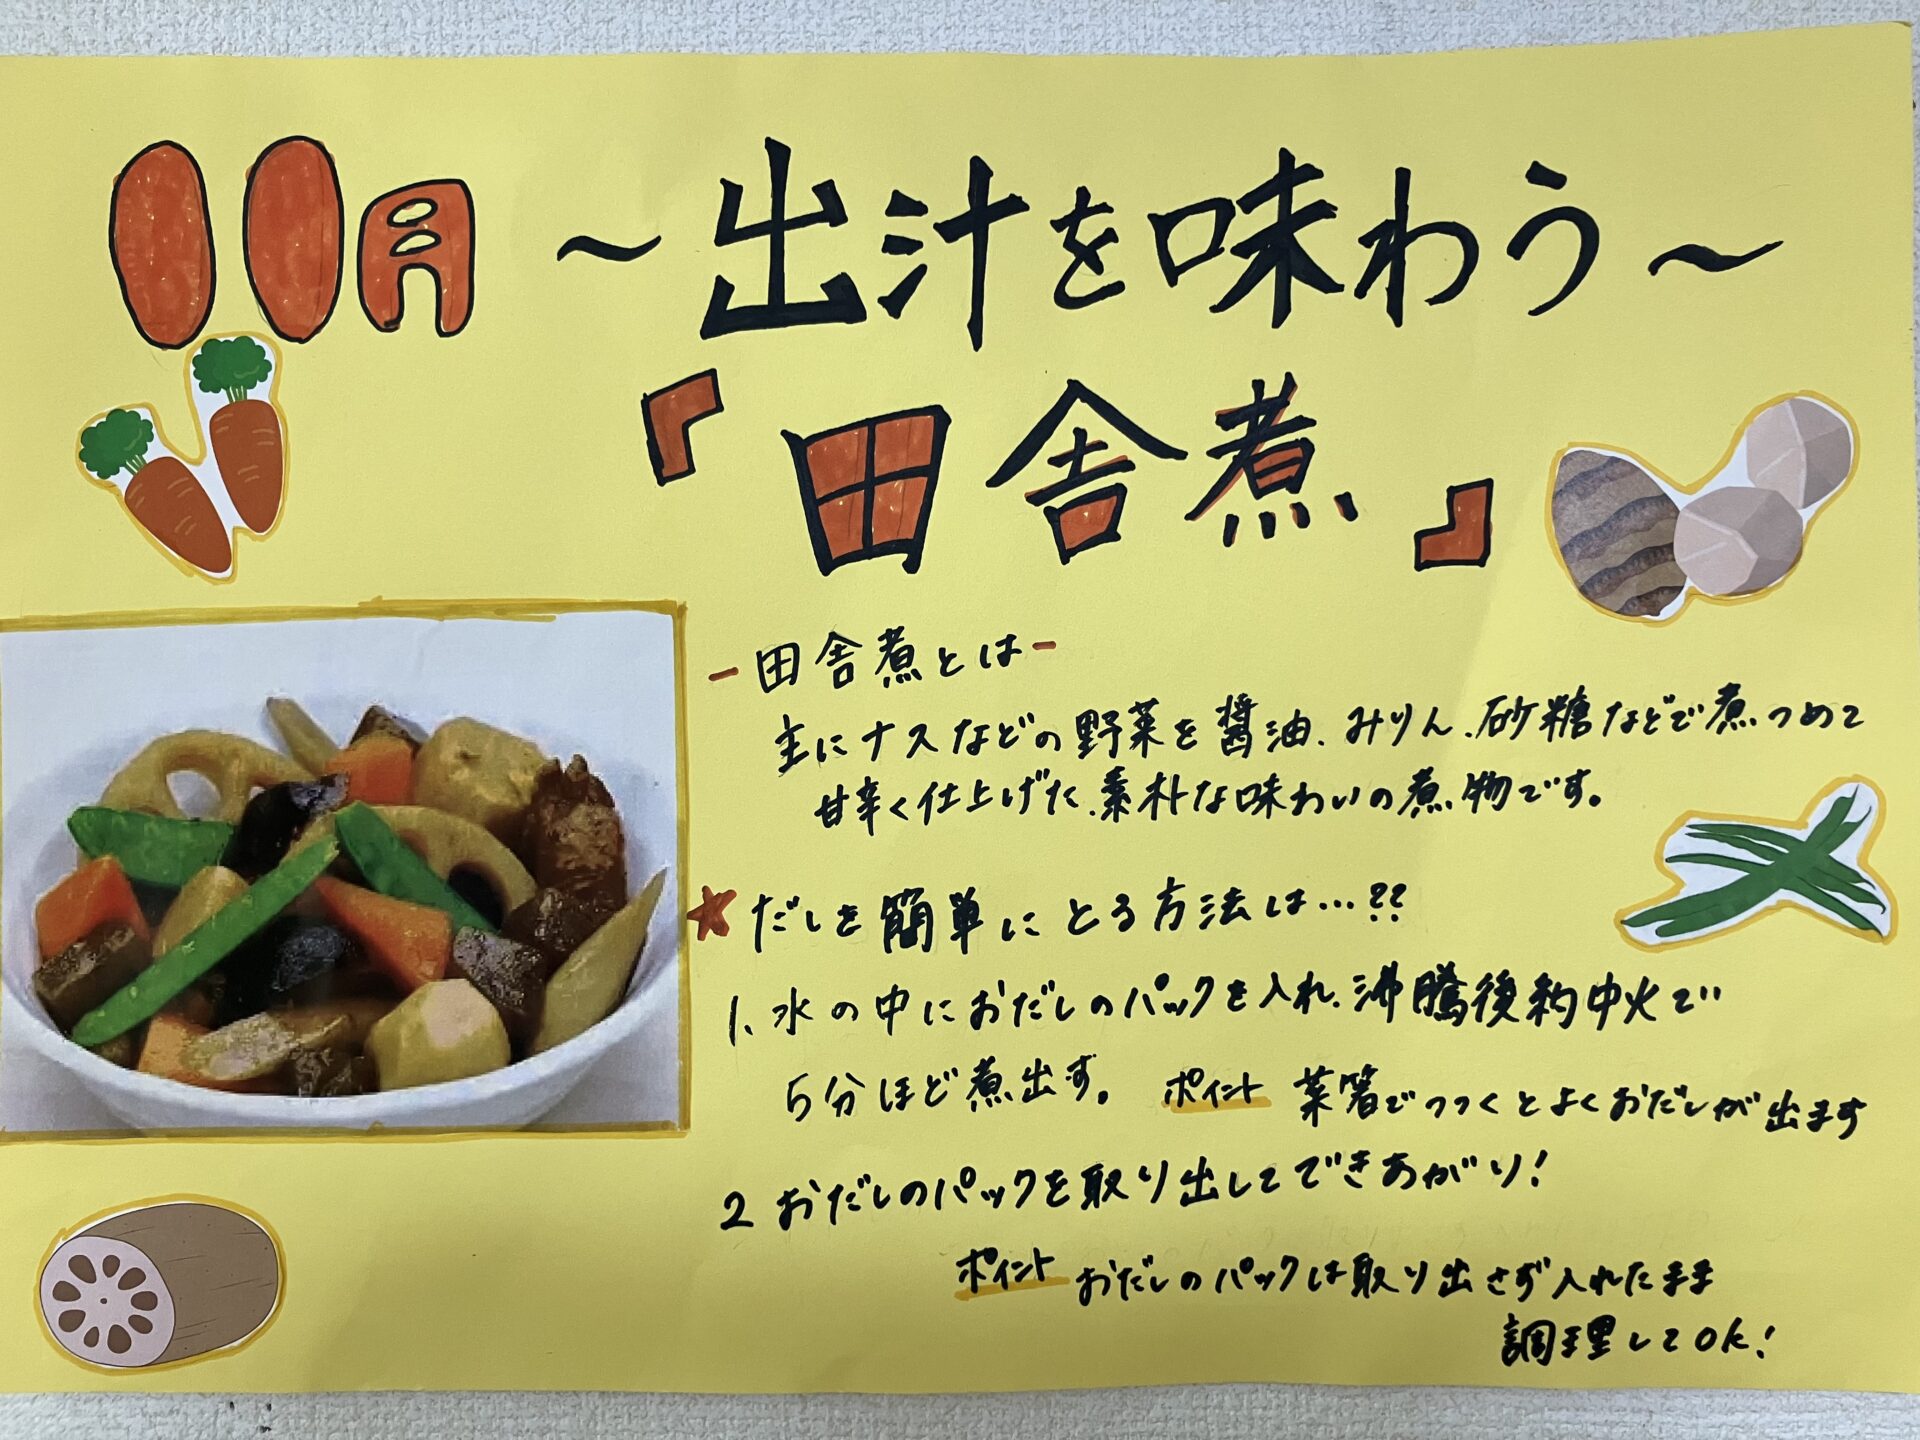 11月 ～出汁を味わう～
『田舎煮』
－田舎煮とは－
主にナスなどの野菜を醤油、みりん、砂糖などで煮つめて
甘辛く仕上げた、素朴な味わいの煮物です。
★だしを簡単にとる方法は…??
1、水の中におだしのパックを入れ、沸騰後約中火で
5分ほど煮出す。 ポイント 菜箸でつつくとよくおだしが出ます
2 おだしのパックを取り出してできあがり!
ポイント おだしのパックは取り出さず入れたまま
調理してOK!